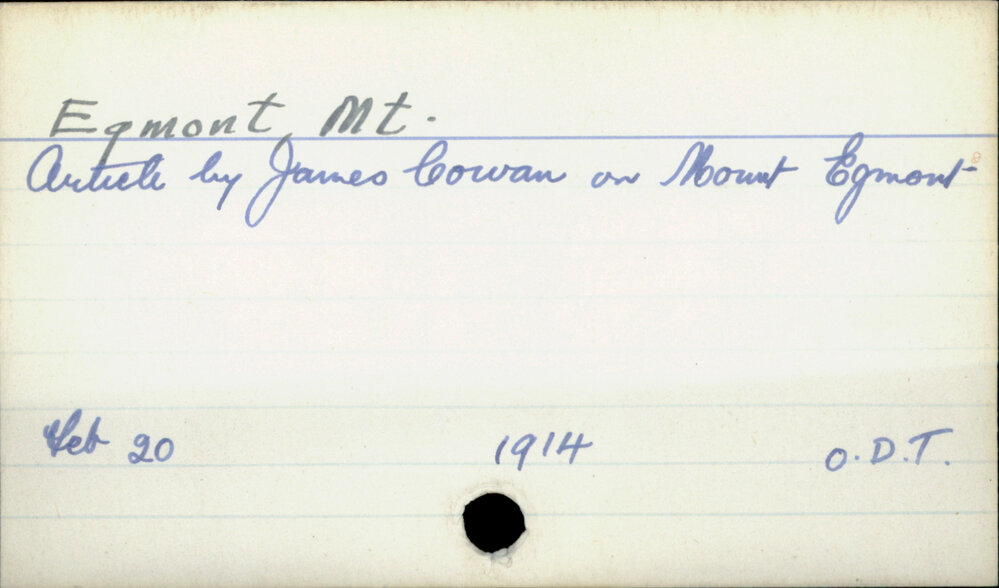 Egmont, Mt.
Article by James Cowan on Mount Egmont
Feb 20 1914 O.D.T.